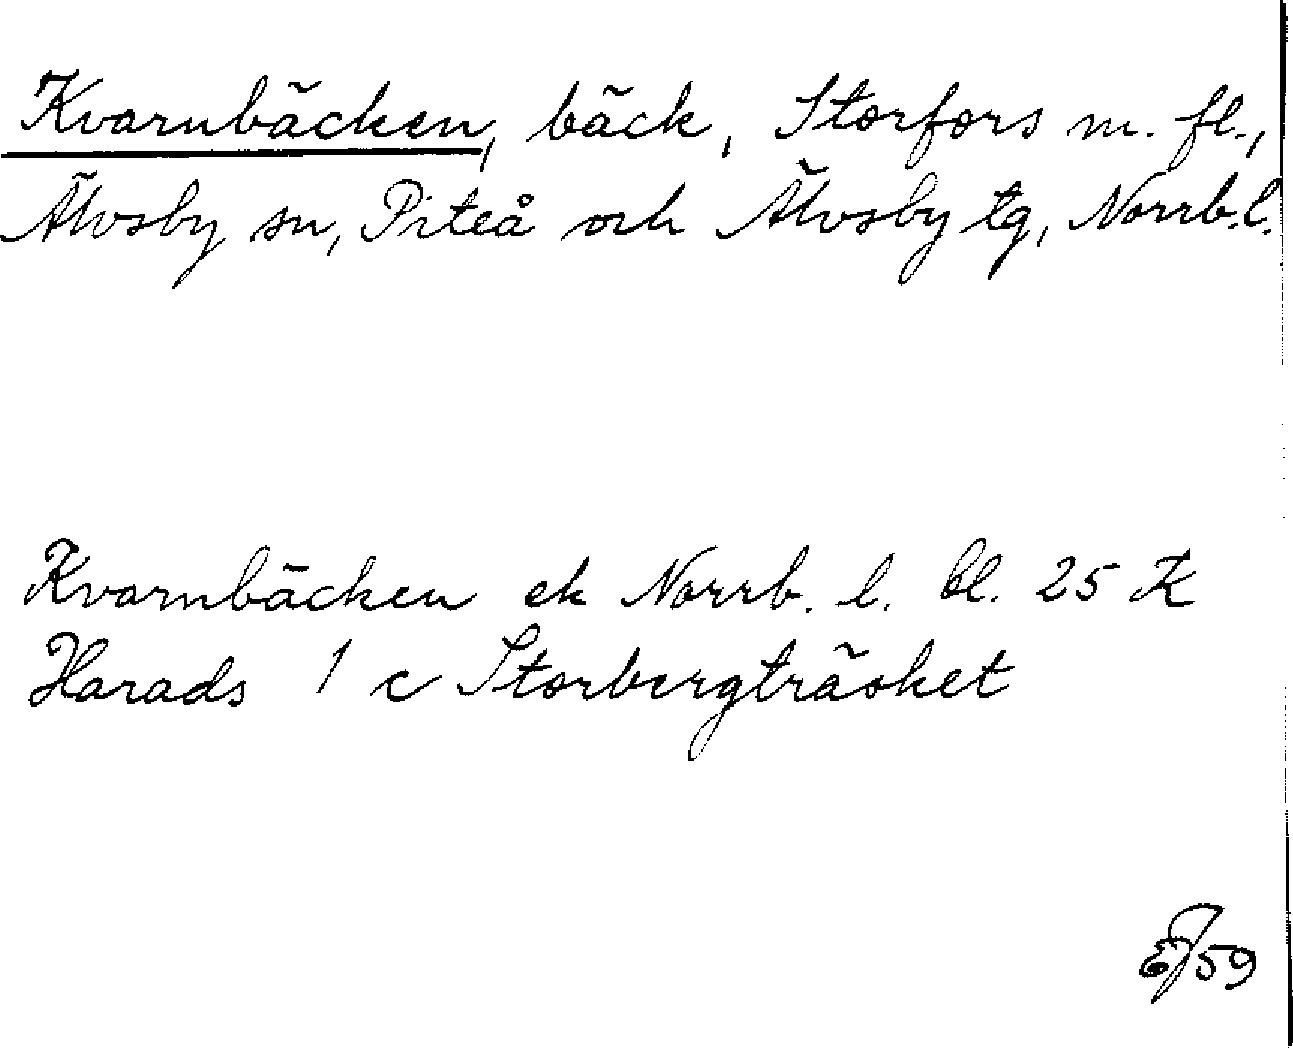 Kvarnbäcken, bäck, Storfors m. fl.,
Älvsby sn, Piteå och Älvsby tg, Norrb.l.
Kvarnbäcken ek Norrb. l. bl. 25 K
Harads 1 c Storbergträsket
59